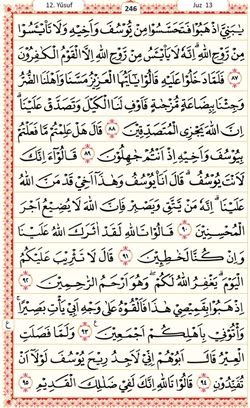 12. Yûsuf 246 Juz 13
يَٰبَنِيَّ ٱذْهَبُوا۟ فَتَحَسَّسُوا۟ مِن يُوسُفَ وَأَخِيهِ وَلَا تَا۟يْـَٔسُوا۟
مِن رَّوْحِ ٱللَّهِ ۖ إِنَّهُۥ لَا يَا۟يْـَٔسُ مِن رَّوْحِ ٱللَّهِ إِلَّا ٱلْقَوْمُ ٱلْكَٰفِرُونَ
٨٧ فَلَمَّا دَخَلُوا۟ عَلَيْهِ قَالُوا۟ يَٰٓأَيُّهَا ٱلْعَزِيزُ مَسَّنَا وَأَهْلَنَا ٱلضُّرُّ
وَجِئْنَا بِبِضَٰعَةٍ مُّزْجَىٰةٍ فَأَوْفِ لَنَا ٱلْكَيْلَ وَتَصَدَّقْ عَلَيْنَآ ۖ
إِنَّ ٱللَّهَ يَجْزِى ٱلْمُتَصَدِّقِينَ ٨٨ قَالَ هَلْ عَلِمْتُم مَّا فَعَلْتُم
بِيُوسُفَ وَأَخِيهِ إِذْ أَنتُمْ جَٰهِلُونَ ٨٩ قَالُوٓا۟ أَءِنَّكَ
لَأَنتَ يُوسُفُ ۖ قَالَ أَنَا۠ يُوسُفُ وَهَٰذَآ أَخِى ۖ قَدْ مَنَّ ٱللَّهُ
عَلَيْنَآ ۖ إِنَّهُۥ مَن يَتَّقِ وَيَصْبِرْ فَإِنَّ ٱللَّهَ لَا يُضِيعُ أَجْرَ
ٱلْمُحْسِنِينَ ٩٠ قَالُوا۟ تَٱللَّهِ لَقَدْ ءَاثَرَكَ ٱللَّهُ عَلَيْنَا
وَإِن كُنَّا لَخَٰطِـِٔينَ ٩١ قَالَ لَا تَثْرِيبَ عَلَيْكُمُ
ٱلْيَوْمَ ۖ يَغْفِرُ ٱللَّهُ لَكُمْ ۖ وَهُوَ أَرْحَمُ ٱلرَّٰحِمِينَ ٩٢
ٱذْهَبُوا۟ بِقَمِيصِى هَٰذَا فَأَلْقُوهُ عَلَىٰ وَجْهِ أَبِى يَأْتِ بَصِيرًا
وَأْتُونِى بِأَهْلِكُمْ أَجْمَعِينَ ٩٣ وَلَمَّا فَصَلَتِ
ٱلْعِيرُ قَالَ أَبُوهُمْ إِنِّى لَأَجِدُ رِيحَ يُوسُفَ ۖ لَوْلَآ أَن
تُفَنِّدُونِ ٩٤ قَالُوا۟ تَٱللَّهِ إِنَّكَ لَفِى ضَلَٰلِكَ ٱلْقَدِيمِ ٩٥